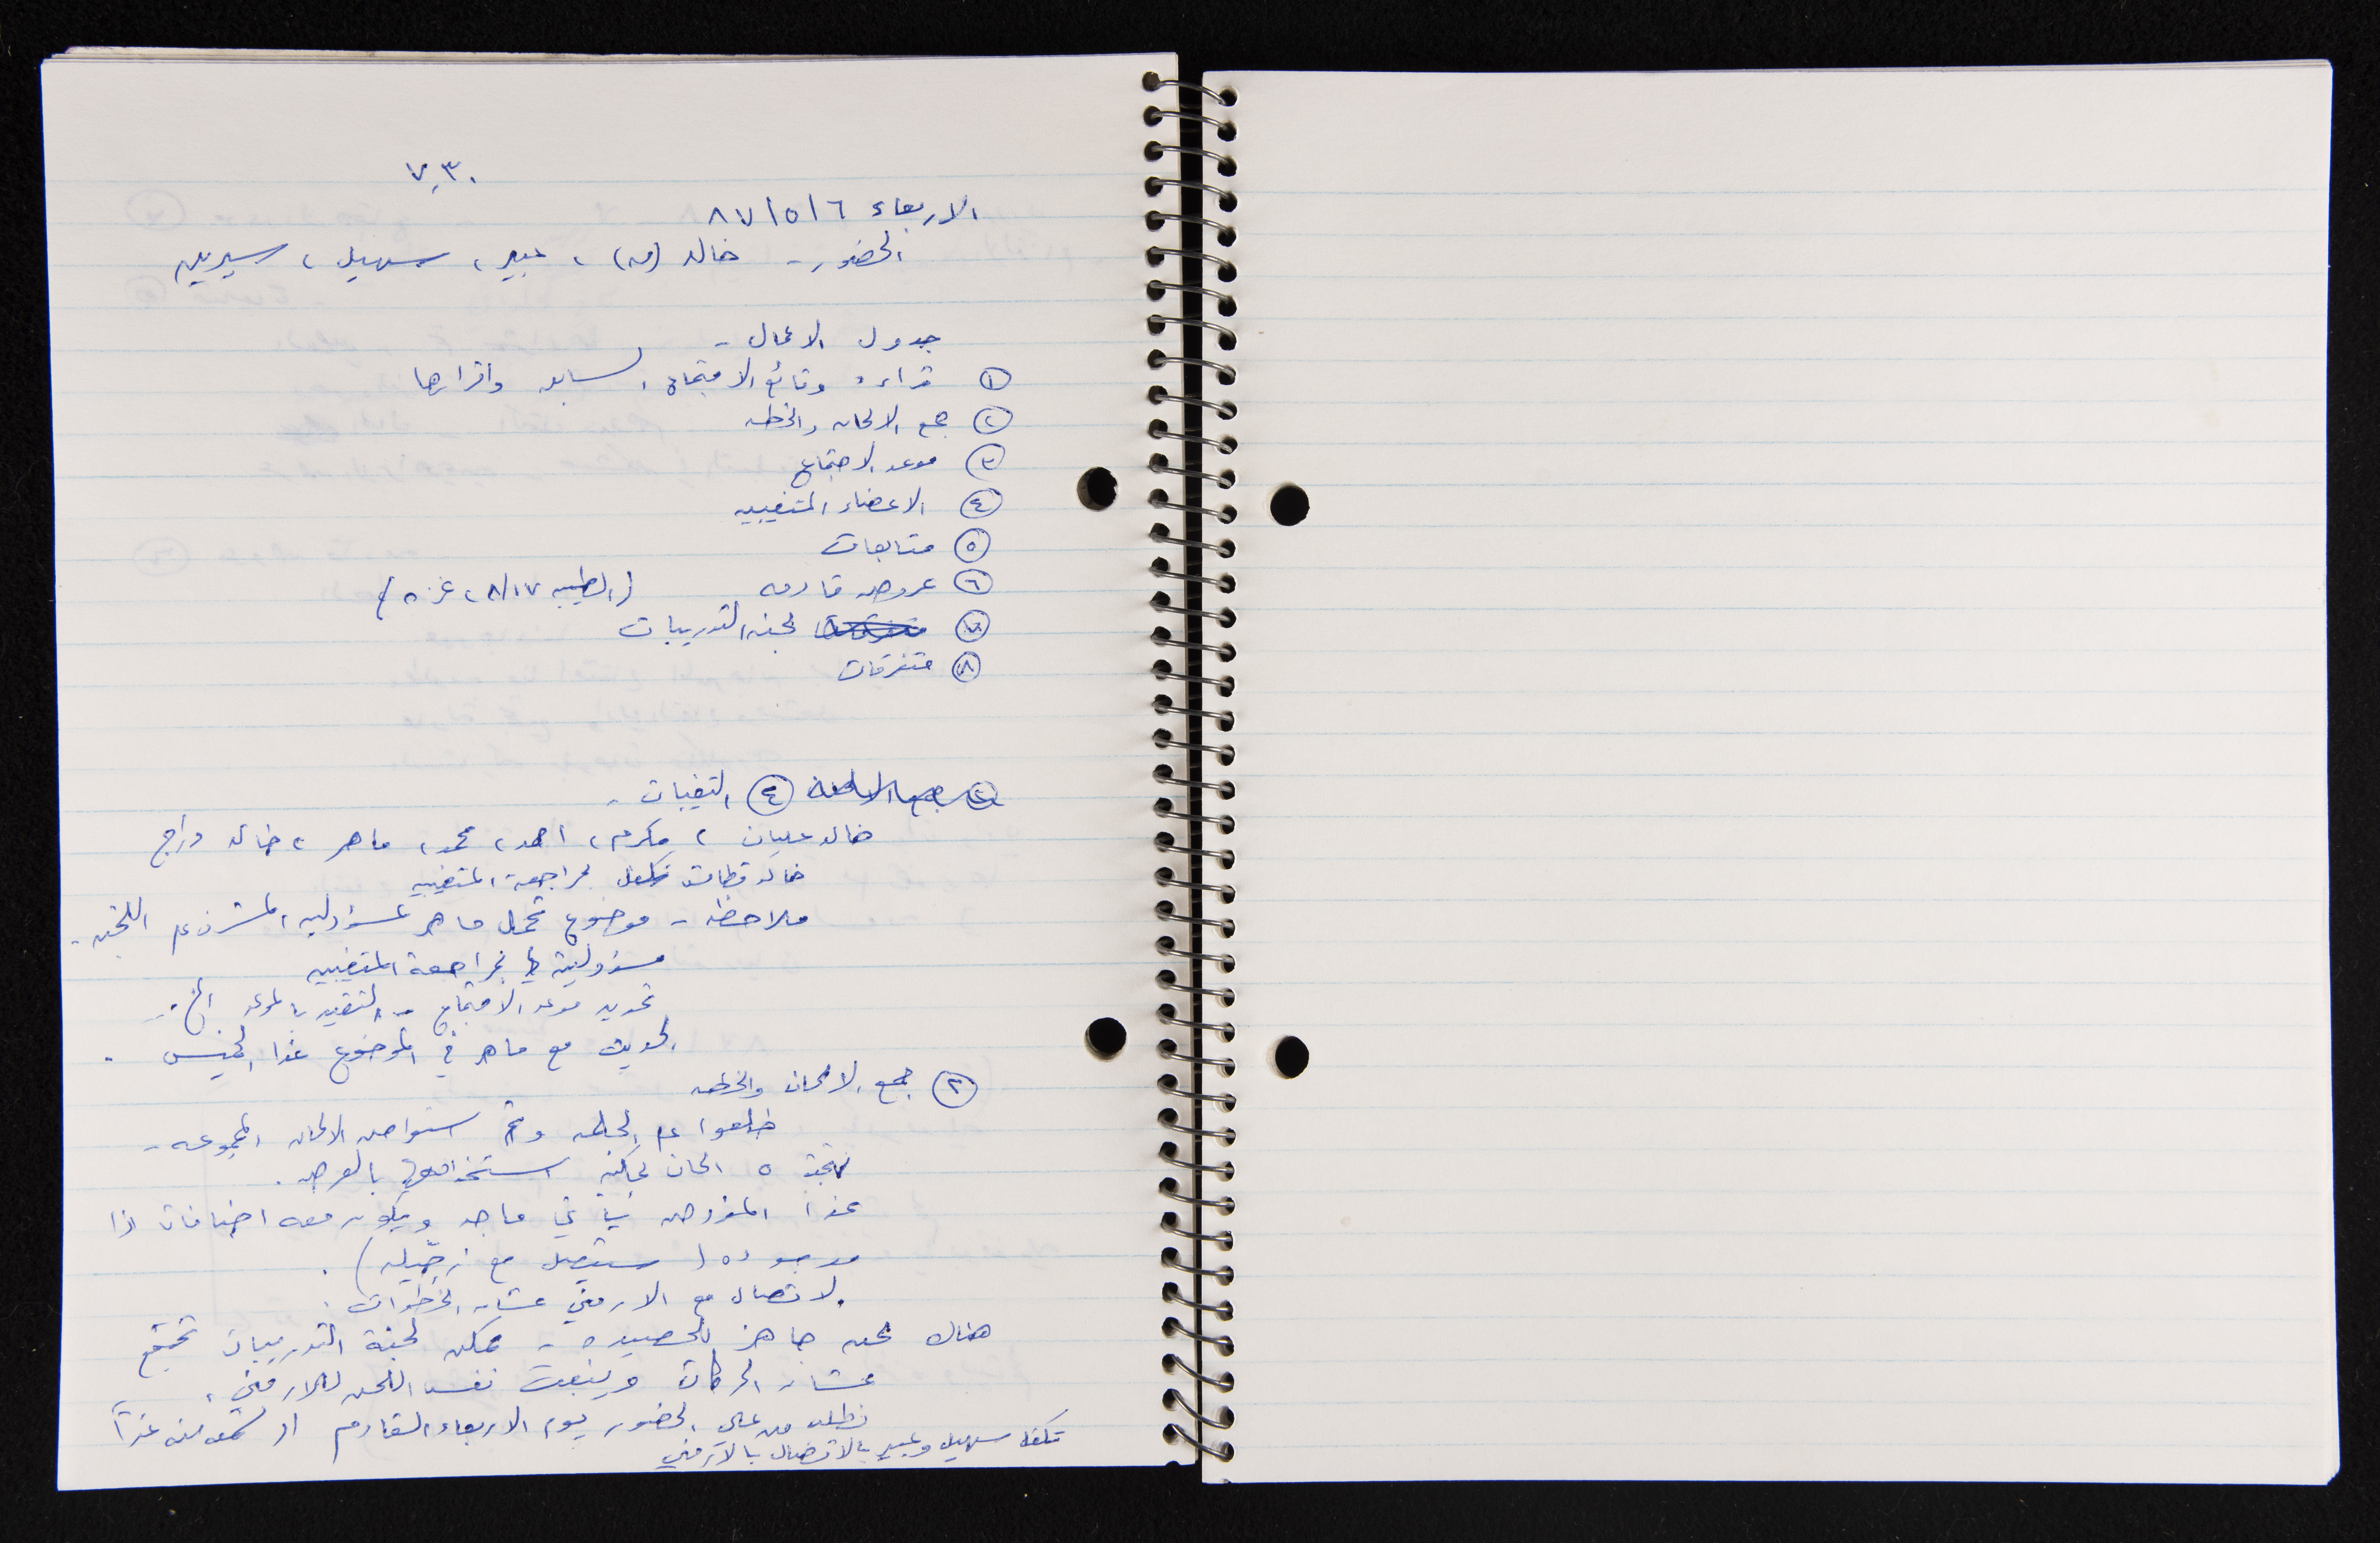 ٧,٣٠
الاربعاء ٨٧/٥/٦
الحضور - خالد (ق)، عبير، سهيل، سيرين
جدول الاعمال -
١ قراءة وقائع الاجتماع السابق واقرارها
٢ جمع الالحان والخطه
٣ موعد الاجتماع
٤ الاعضاء المتغيبين
٥ متابعات
٦ عروض قادمه (الطيبه ٨/١٧، غزه)
٧ متفرقات لجنة التدريبات
٨ متفرقات
٤ التغيبات -
خالد عليان، مكرم، احمد، محمد، ماهر، خالد وراجح
خالد قطامش تكفل بمراجعة المتغيبين
ملاحظه - موضوع تحمل ماهر لمسؤوليه المشرف على اللجنه -
مسؤولية بمراجعة المتغيبين
تحديد موعد الاجتماع - التقيد بالموعد الخ..
الحديث مع ماهر في الموضوع غدا الخميس .
٢ جمع الالحان والخطه
على الخطه وتم استعراض الالحان المجموعه -
٥ الحان يمكن استخدامها بالعرض .
غدا المفروض ياتي ماجد ويكون معه اضافات اذا
موجوده ( سيتصل مع ) .
الاتصال مع الارمني عشان الخطوات .
هناك لحن جاهز للحصيده - ممكن لجنة التدريبات تجتمع
عشان الحركات وينبعت نفس اللحن للارمني .
نطلب من علي الحضور يوم الاربعاء القادم او غداً
تكفل سهيل وعبير بالاتصال بالارمني